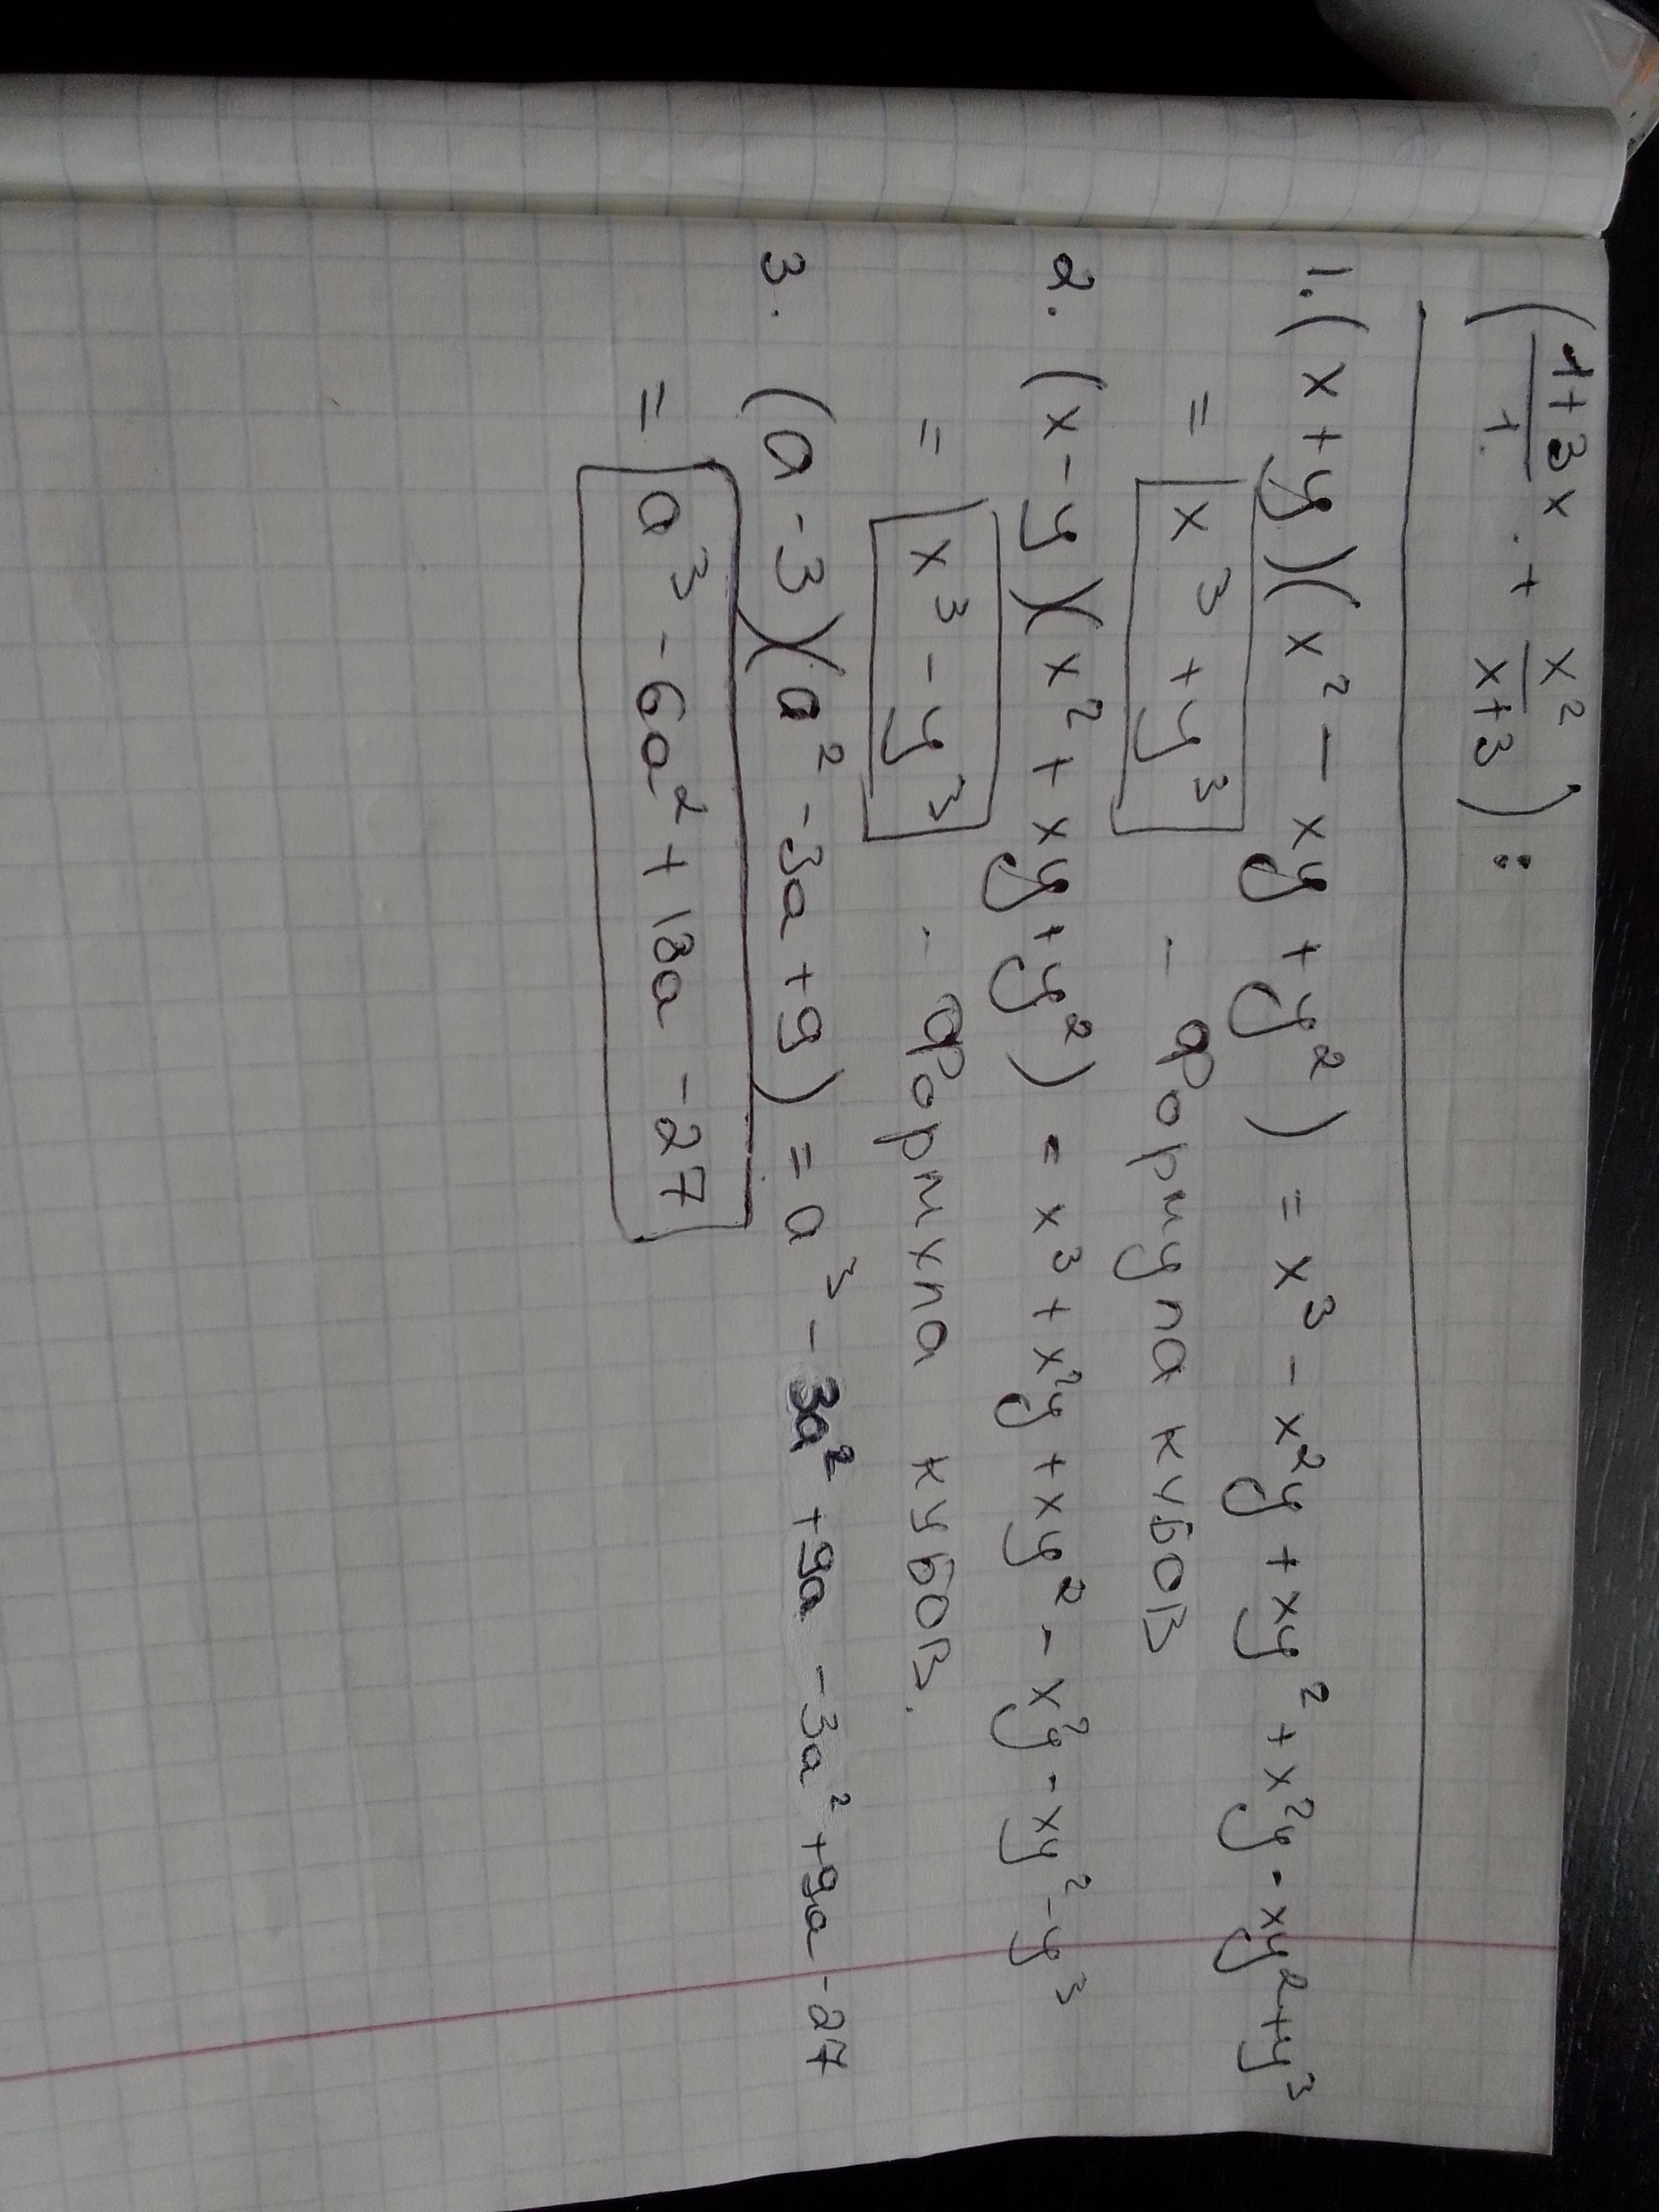 (1+3x/1. · + x²/x+3) :
1. (x+y)(x² - xy + y²) = x³ - x²y + xy² + x²y - xy² + y³
= x³ + y³ - формула кубов
2. (x-y)(x² + xy + y²) = x³ + x²y + xy² - x²y - xy² - y³
= x³ - y³ - формхла кубов.
3. (a-3)(a² - 3a + 9) = a³ - 3a² + 9a - 3a² + 9a - 27
= a³ - 6a² + 18a - 27